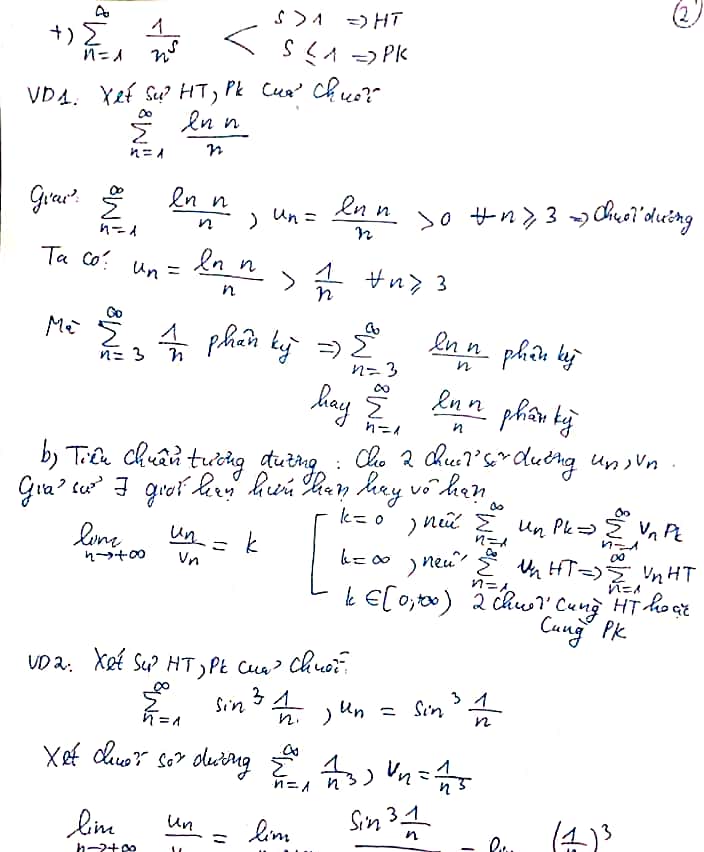 2
+) ∑_{n=1}^{∞} 1/n^s < s > 1 => HT
s ≤ 1 => PK
VD1. Xét sự HT, PK của chuỗi
∑_{n=1}^{∞} ln n / n
Giải: ∑_{n=1}^{∞} ln n / n , u_n = ln n / n > 0 ∀n ≥ 3 => Chuỗi dương
Ta có: u_n = ln n / n > 1/n ∀n ≥ 3
Mà ∑_{n=3}^{∞} 1/n phân kỳ => ∑_{n=3}^{∞} ln n / n phân kỳ
hay ∑_{n=1}^{∞} ln n / n phân kỳ
b) Tiêu chuẩn tương đương : Cho 2 chuỗi số dương u_n, v_n .
Giả sử ∃ giới hạn hữu hạn hay vô hạn
lim_{n→+∞} u_n / v_n = k [ k = 0 , nếu ∑_{n=1}^{∞} u_n PK => ∑_{n=1}^{∞} v_n PK
k = ∞ , nếu ∑_{n=1}^{∞} u_n HT => ∑_{n=1}^{∞} v_n HT
k ∈ [0; +∞) 2 chuỗi cùng HT hoặc
Cùng PK
VD2: Xét sự HT, PK của chuỗi:
∑_{n=1}^{∞} sin^3 1/n , u_n = sin^3 1/n
Xét chuỗi số dương ∑_{n=1}^{∞} 1/n^3 , v_n = 1/n^3
lim_{n→+∞} u_n / v_n = lim sin^3 1/n = lim (1/n)^3